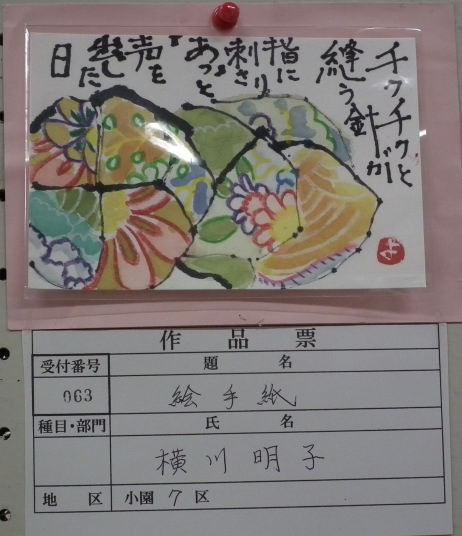 チクチクと
縫う針が
指に
刺さり
あっと
声を
発した
日
よ
作品票
受付番号
題名
063
絵手紙
種目・部門
氏名
横川明子
地区
小園7区